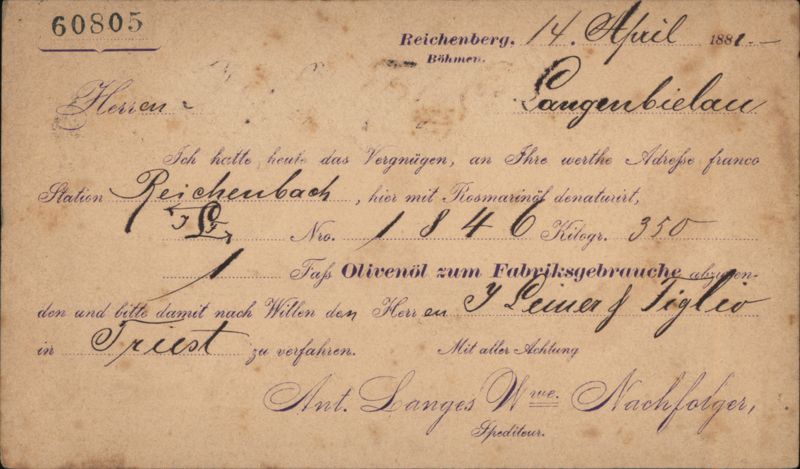 60805
Reichenberg, 14. April 1881.
Böhmen.
Herren
Langenbielau
Ich hatte heute das Vergnügen, an Ihre werthe Adresse franco
Station Reichenbach, hier mit Rosmarinöl denaturirt,
JL Nro. 1846 Kilogr. 350
1 Faß Olivenöl zum Fabriksgebrauche abzusen-
den und bitte damit nach Willen den Herren J Leiner & Figlio
in Triest zu verfahren. Mit aller Achtung
Ant. Langes Wwe. Nachfolger,
Spediteur.